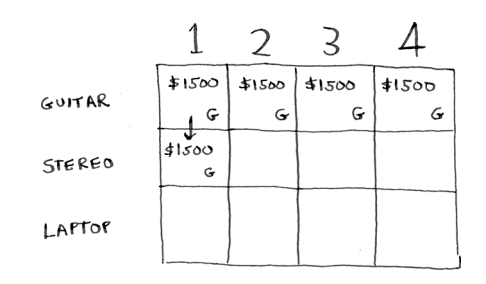 1 2 3 4
GUITAR $1500 G $1500 G $1500 G $1500 G
STEREO $1500 G
LAPTOP